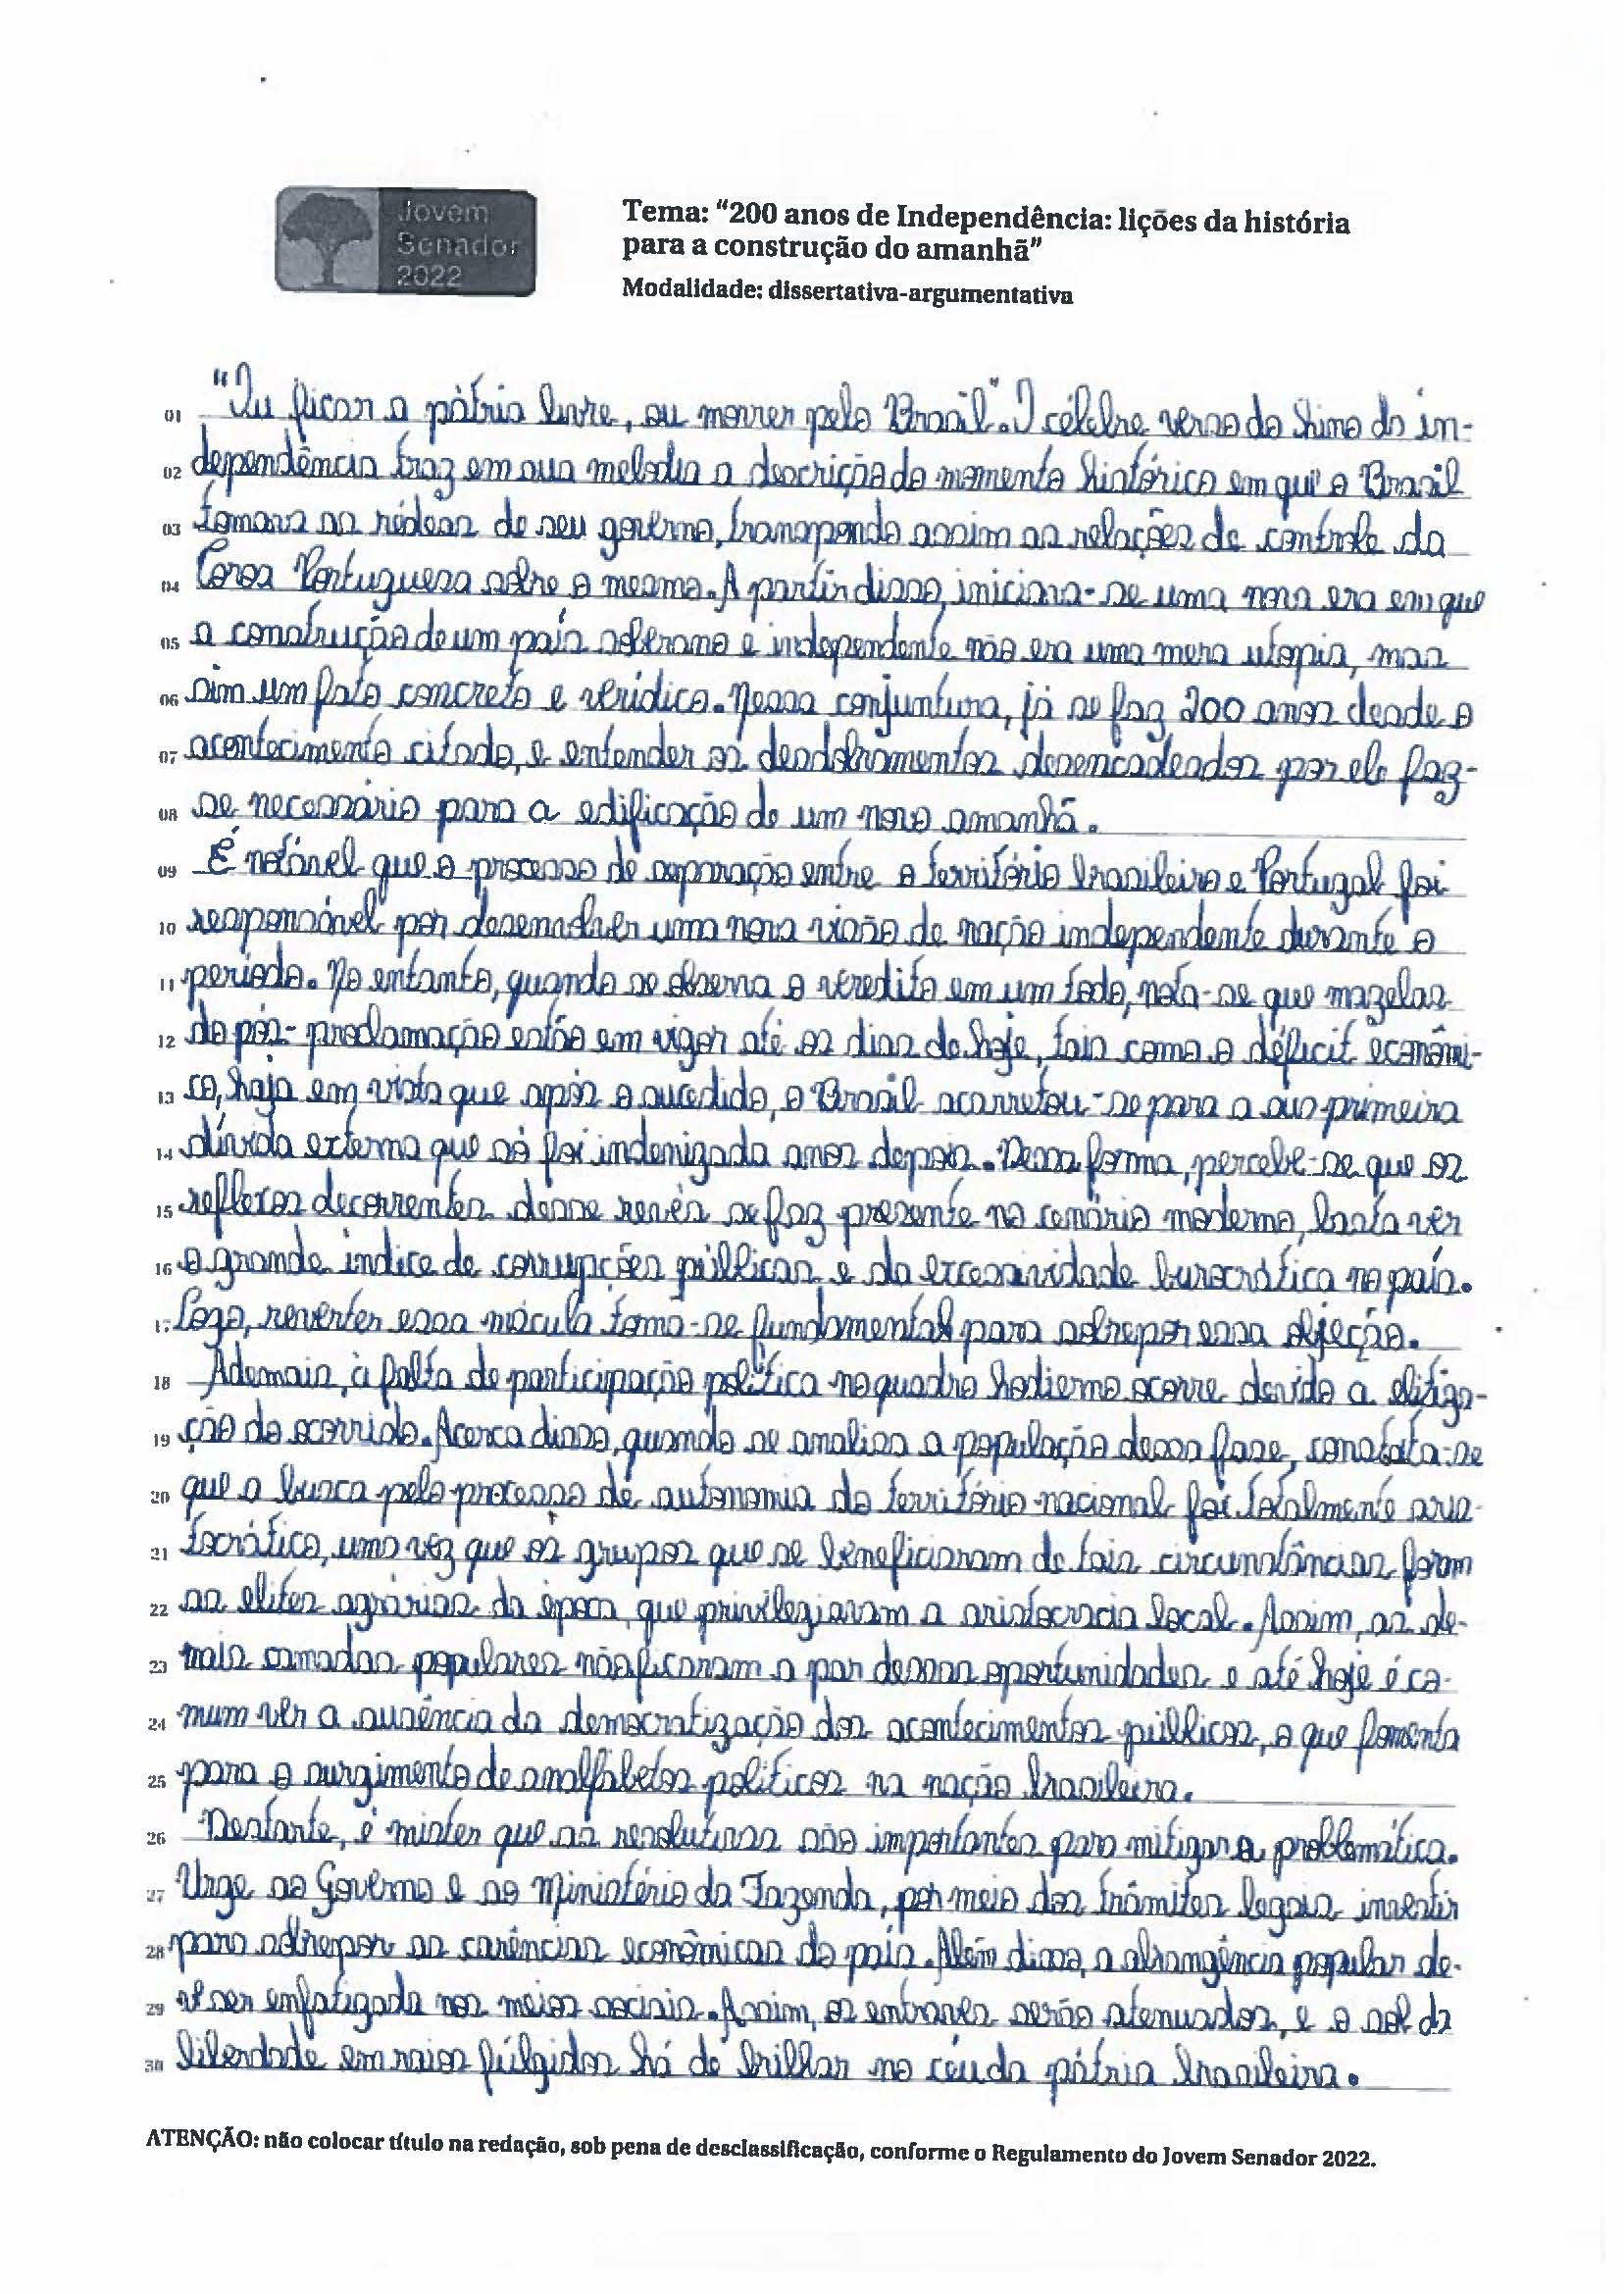 Jovem
Senador
2022
Tema: "200 anos de Independência: lições da história
para a construção do amanhã"
Modalidade: dissertativa-argumentativa
01 "Ou ficar a pátria livre, ou morrer pelo Brasil". O célebre verso do hino da in-
02 dependência traz em sua melodia a descrição do momento histórico em que o Brasil
03 tomara as rédeas de seu governo, transpondo assim as relações de controle da
04 Coroa Portuguesa sobre o mesmo. A partir disso, iniciara-se uma nova era em que
05 a construção de um país soberano e independente não era uma mera utopia, mas
06 sim um fato concreto e verídico. Nessa conjuntura, já se faz 200 anos desde o
07 acontecimento citado, e entender os desdobramentos desencadeados por ele faz-
08 se necessário para a edificação de um novo amanhã.
09 É notável que o processo de separação entre o território brasileiro e Portugal foi
10 responsável por desenvolver uma nova visão de nação independente durante o
11 período. No entanto, quando se observa o veredito em um todo, nota-se que mazelas
12 do pós-proclamação estão em vigor até os dias de hoje, tais como o déficit econômi-
13 co, haja em vista que após o sucedido, o Brasil acarretou-se para a sua primeira
14 dívida externa que só foi indenizada anos depois. Dessa forma, percebe-se que os
15 reflexos decorrentes desse revés se faz presente no cenário moderno, basta ver
16 o grande índice de corrupções públicas e da excessividade burocrática no país.
17 Logo, reverter essa mácula torna-se fundamental para sobrepor essa objeção.
18 Ademais, à falta de participação política no quadro hodierno ocorre devido a elitiza-
19 ção do ocorrido. Acerca disso, quando se analisa a população dessa fase, constata-se
20 que a busca pelo processo de autonomia do território nacional foi totalmente aris-
21 tocrático, uma vez que os grupos que se beneficiaram de tais circunstâncias foram
22 as elites agrárias da época, que privilegiavam a aristocracia local. Assim, as de-
23 mais camadas populares não ficaram a par dessas oportunidades e até hoje é co-
24 mum ver a ausência da democratização dos acontecimentos públicos, o que fomenta
25 para o surgimento de analfabetos políticos na nação brasileira.
26 Destarte, é mister que as resolutivas são importantes para mitigar a problemática.
27 Urge ao Governo e ao Ministério da Fazenda, por meio dos trâmites legais investir
28 para sobrepor as carências econômicas do país. Além disso, a abrangência popular de-
29 ve ser enfatizada nos meios sociais. Assim, os entraves serão atenuados, e o sol da
30 liberdade em raios fúlgidos há de brilhar no céu da pátria brasileira.
ATENÇÃO: não colocar título na redação, sob pena de desclassificação, conforme o Regulamento do Jovem Senador 2022.